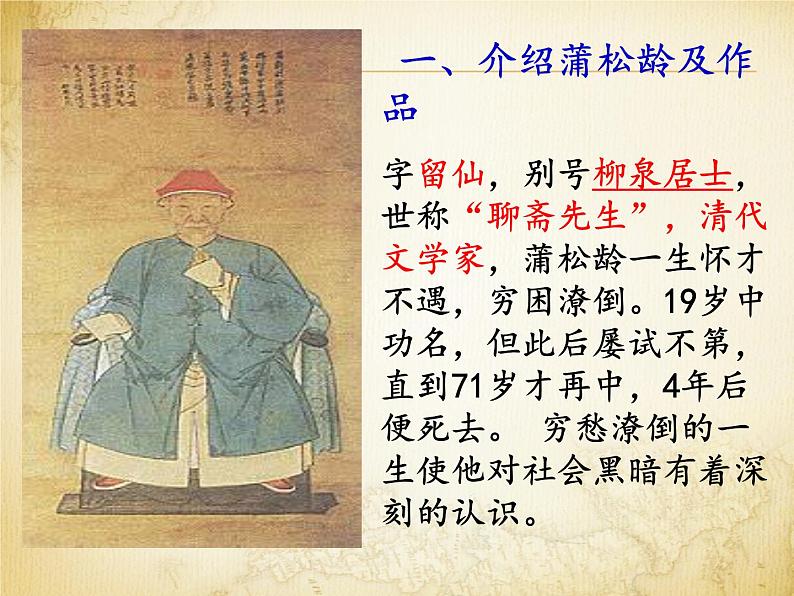 一、介绍蒲松龄及作
品
字留仙，别号柳泉居士，
世称“聊斋先生”，清代
文学家，蒲松龄一生怀才
不遇，穷困潦倒。19岁中
功名，但此后屡试不第，
直到71岁才再中，4年后
便死去。 穷愁潦倒的一
生使他对社会黑暗有着深
刻的认识。